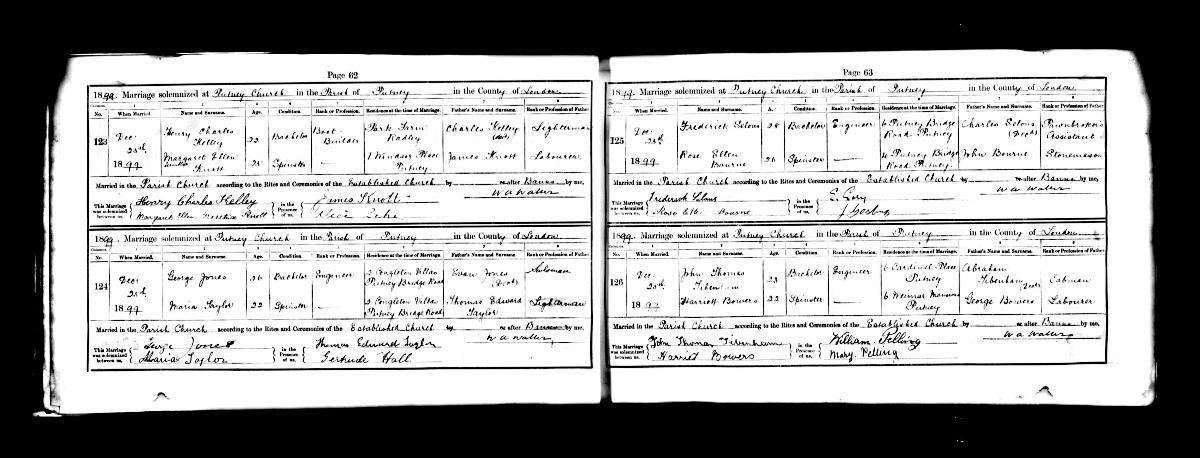 Page 62
1899. Marriage solemnized at Putney Church in the Parish of Putney in the County of London
No. When Married. Name and Surname. Age. Condition. Rank or Profession. Residence at the time of Marriage. Father's Name and Surname. Rank or Profession of Father
123 Dec: 25th 1899
Henry Charles Kelley 22 Bachelor Boat Builder Park Farm Radley Charles Kelley Lighterman
Margaret Ellen Knott 25 Spinster — 1 Windsor Place Putney James Knott Labourer
Married in the Parish Church according to the Rites and Ceremonies of the Established Church by or after Banns by me,
W A Walter
This Marriage was solemnized between us, Henry Charles Kelley in the Presence of us, James Knott
Margaret Ellen Knott Alice
1899. Marriage solemnized at Putney Church in the Parish of Putney in the County of London
No. When Married. Name and Surname. Age. Condition. Rank or Profession. Residence at the time of Marriage. Father's Name and Surname. Rank or Profession of Father
124 Dec: 25th 1899
George Jones 26 Bachelor Engineer 2 Congleton Villas Putney Bridge Road Evan Jones (Decd)
Maria Taylor 22 Spinster — 2 Congleton Villas Putney Bridge Road Thomas Edward Taylor Lighterman
Married in the Parish Church according to the Rites and Ceremonies of the Established Church by or after Banns by me,
W A Walter
This Marriage was solemnized between us, George Jones in the Presence of us, Thomas Edward Taylor
Maria Taylor Gertrude Hall
Page 63
1899. Marriage solemnized at Putney Church in the Parish of Putney in the County of London
No. When Married. Name and Surname. Age. Condition. Rank or Profession. Residence at the time of Marriage. Father's Name and Surname. Rank or Profession of Father
125 Dec: 25th 1899
Frederick 28 Bachelor Engineer 6 Putney Bridge Road Putney Charles (Decd) Pawnbroker's Assistant
Rose Ellen Bourne 26 Spinster — 4 Putney Bridge Road Putney John Bourne Stonemason
Married in the Parish Church according to the Rites and Ceremonies of the Established Church by or after Banns by me,
W A Walter
This Marriage was solemnized between us, Frederick in the Presence of us,
Rose Ellen Bourne
1899. Marriage solemnized at Putney Church in the Parish of Putney in the County of London
No. When Married. Name and Surname. Age. Condition. Rank or Profession. Residence at the time of Marriage. Father's Name and Surname. Rank or Profession of Father
126 Dec: 25th 1899
John Thomas Tibenham 23 Bachelor Engineer 6 Cardinal Place Putney Abraham Tibenham (Decd) Cabman
Harriet Bowers 22 Spinster — 6 Weimar Mansions Putney George Bowers Labourer
Married in the Parish Church according to the Rites and Ceremonies of the Established Church by or after Banns by me,
W A Walter
This Marriage was solemnized between us, John Thomas Tibenham in the Presence of us, William Pelling
Harriet Bowers Mary Pelling